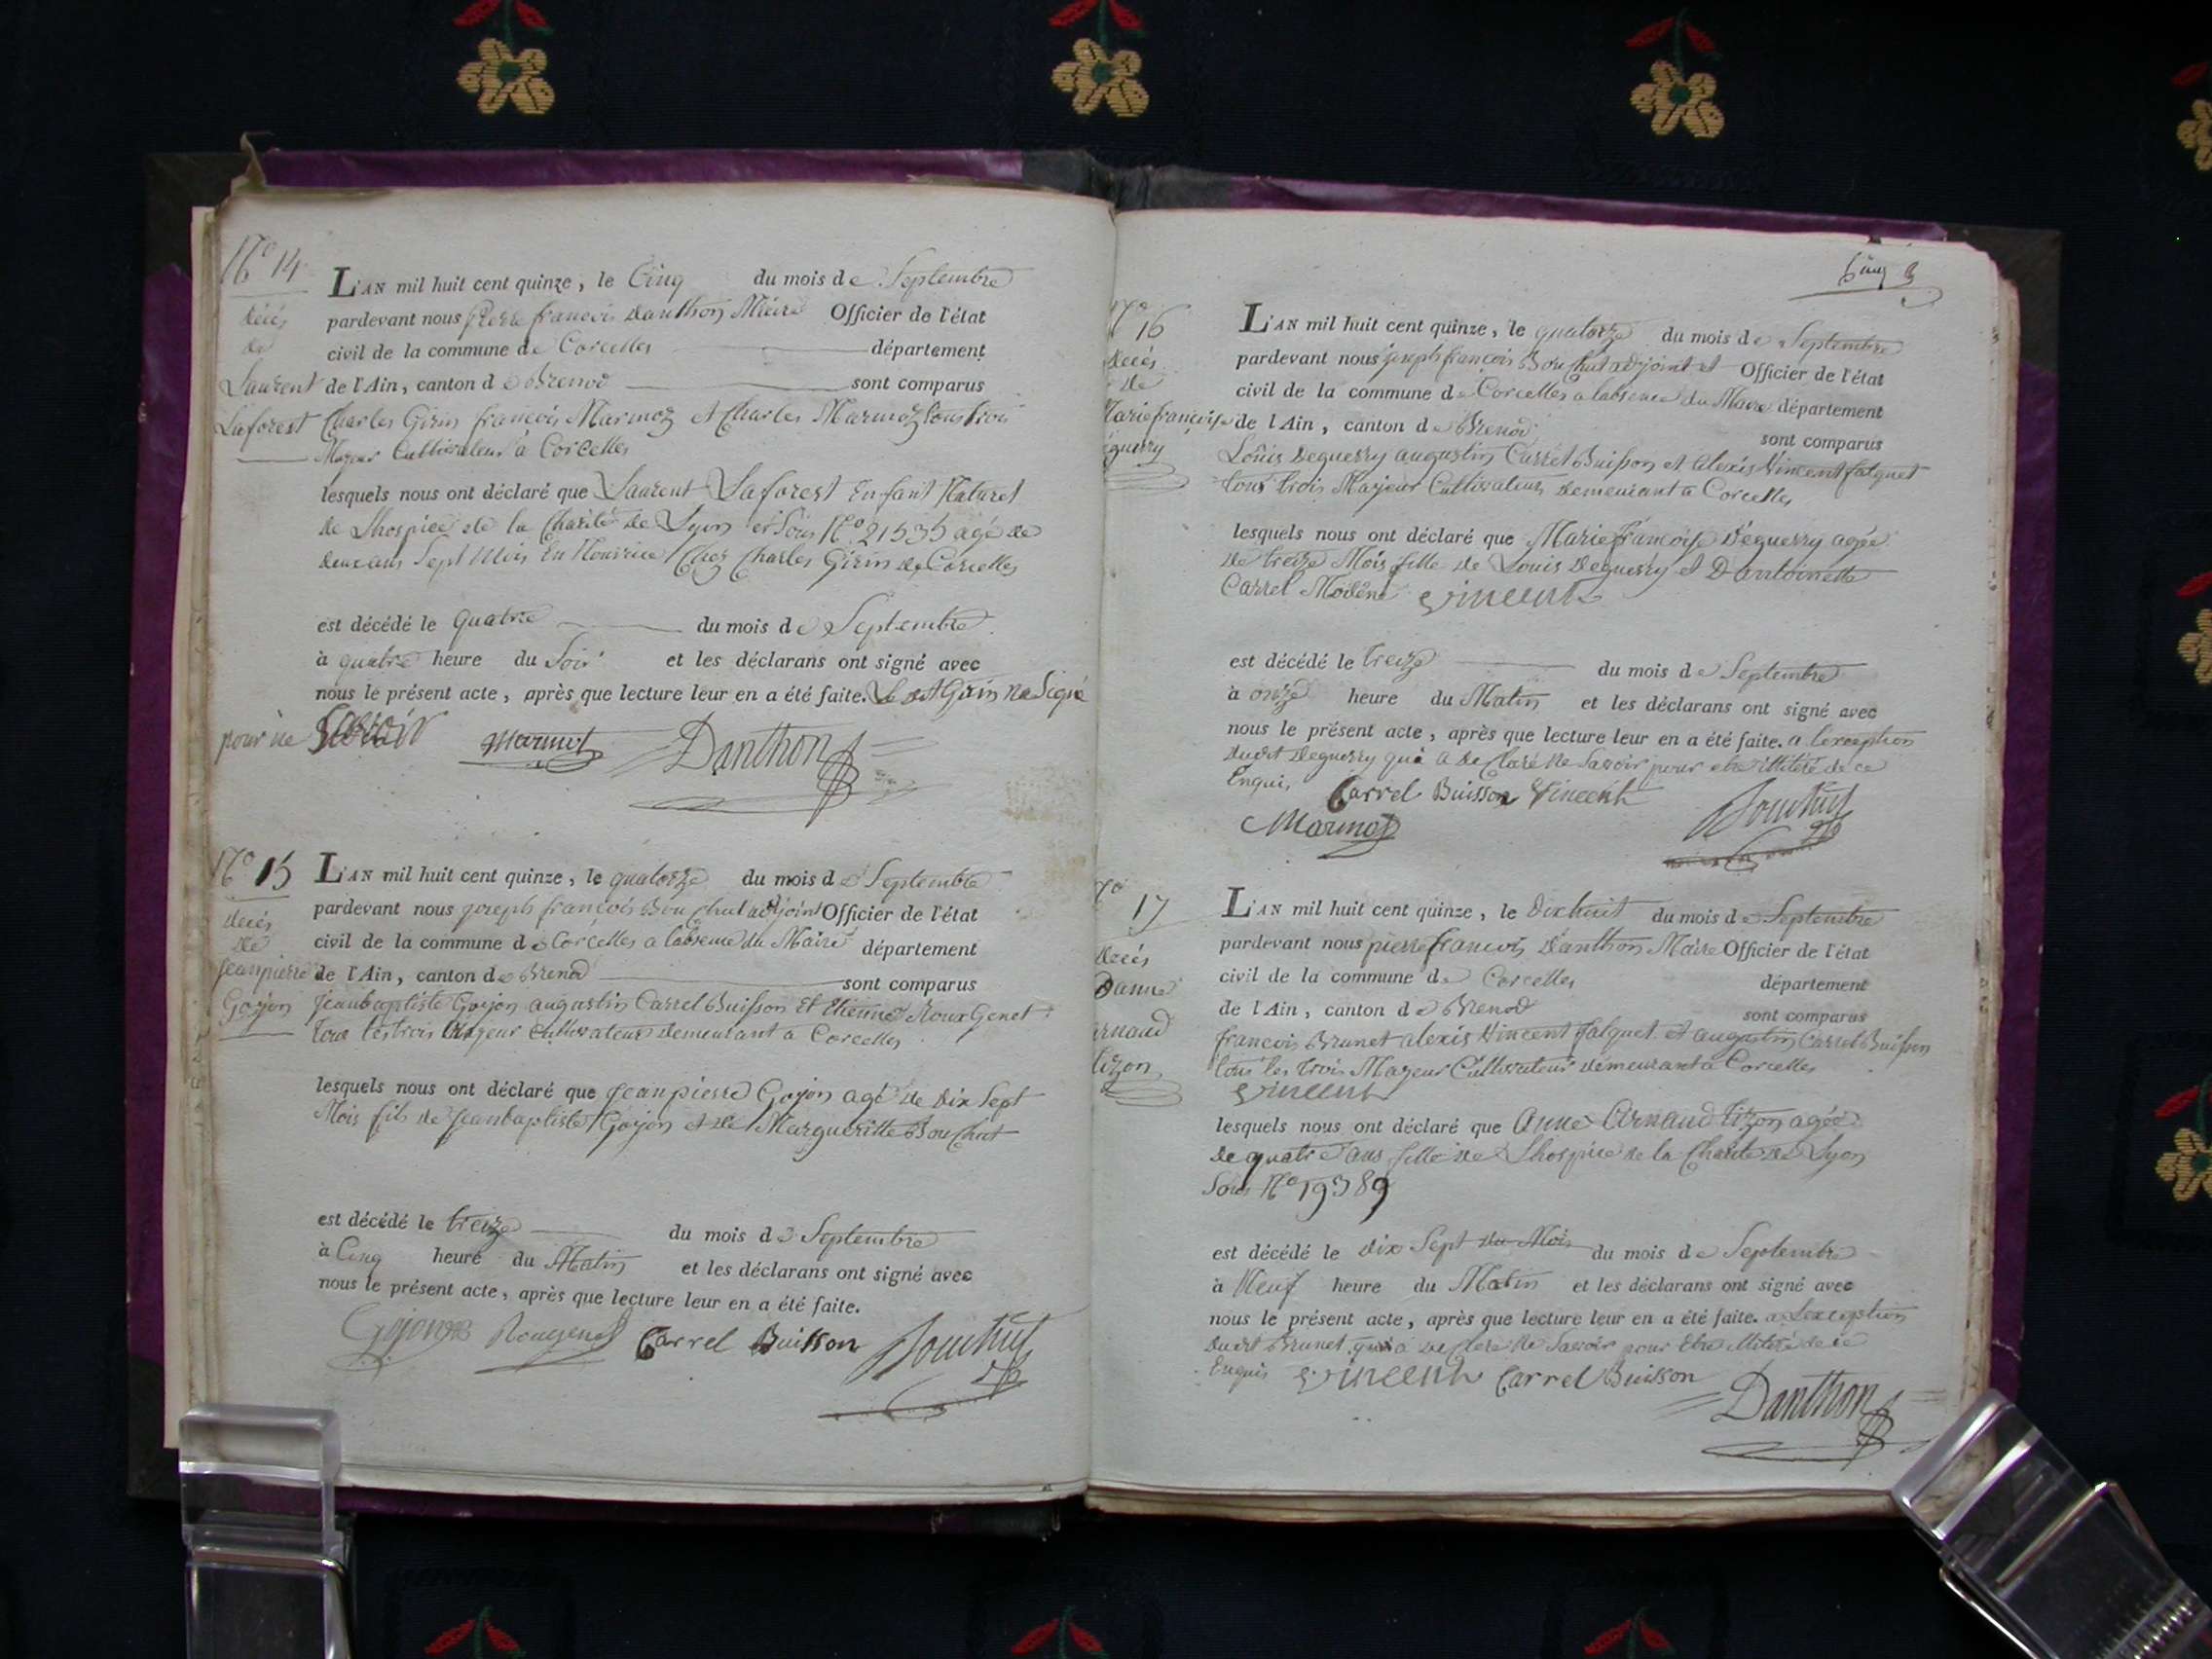 N° 14
décès
de
Laurent
Laforest
L'AN mil huit cent quinze, le Cinq du mois de Septembre
pardevant nous Pierre françois Danthon Maire Officier de l'état
civil de la commune de Corcelles département
de l'Ain, canton de Brenod sont comparus
Charles Girin françois Marmoz et Charles Marmoz tous trois
Majeur Cultivateur à Corcelles
lesquels nous ont déclaré que Laurent Laforest Enfant Naturel
de Lhospice de la Charité de Lyon et Sous N° 21535 agé de
deux ans Sept Mois En Nourrice Chez Charles Girin de Corcelles
est décédé le quatre du mois de Septembre
à quatre heure du Soir et les déclarans ont signé avec
nous le présent acte, après que lecture leur en a été faite. Le dit Girin na Signé
pour ne Savoir
Marmot Danthon
N° 15
décès
de
jeanpierre
Goyon
L'AN mil huit cent quinze, le quatorze du mois de Septembre
pardevant nous joseph françois Bouchut adjoint Officier de l'état
civil de la commune de Corcelles a labsence du Maire département
de l'Ain, canton de Brenod sont comparus
jeanbaptiste Goyon augustin Carrel Buisson Et Etienne Roux Genet
tous les trois Majeur Cultivateurs demeurant a Corcelles
lesquels nous ont déclaré que jeanpierre Goyon agé de Dix Sept
Mois fils de jeanbaptiste Goyon et de Margueritte Bouchut
est décédé le treize du mois de Septembre
à Cinq heure du Matin et les déclarans ont signé avec
nous le présent acte, après que lecture leur en a été faite.
Gojon Rougenet Carrel Buisson Bouchut
N° 16
décès
de
Marie françoise
L'AN mil huit cent quinze, le quatorze du mois de Septembre
pardevant nous joseph françois Bouchut adjoint et Officier de l'état
civil de la commune de Corcelles a labsence du Maire département
de l'Ain, canton de Brenod sont comparus
Louis Deguerry augustin Carrel Buisson et Alexis Vincent falquet
tous trois Majeur Cultivateurs demeurant a Corcelles
lesquels nous ont déclaré que Marie françoise Deguerry agée
de treize Mois fille de Louis Deguerry et D antoinette
Carrel Modéne Vincent
est décédé le treize du mois de Septembre
à onze heure du Matin et les déclarans ont signé avec
nous le présent acte, après que lecture leur en a été faite. a lexception
dudit Deguerry qui a declaré ne Savoir pour etre illitéré de ce
Enquis, Carrel Buisson Vincent Bouchut
Marmoz
17
décès
Danne
L'AN mil huit cent quinze, le Dixhuit du mois de Septembre
pardevant nous pierre françois Danthon Maire Officier de l'état
civil de la commune de Corcelles département
de l'Ain, canton de Brenod sont comparus
francois Brunet alexis Vincent falquet et augustin Carrel Buisson
tous les trois Majeur Cultivateur demeurant a Corcelles
Vincent
lesquels nous ont déclaré que Anne Arnaud tizon agée
de quatre ans fille de Lhospice de la Charité de Lyon
Sous N° 19389
est décédé le dix Sept du Mois du mois de Septembre
à Neuf heure du Matin et les déclarans ont signé avec
nous le présent acte, après que lecture leur en a été faite. a Lexception
dudit Brunet qui a declaré ne Savoir pour Etre illitéré de ce
Enquis Vincent Carrel Buisson
Danthon